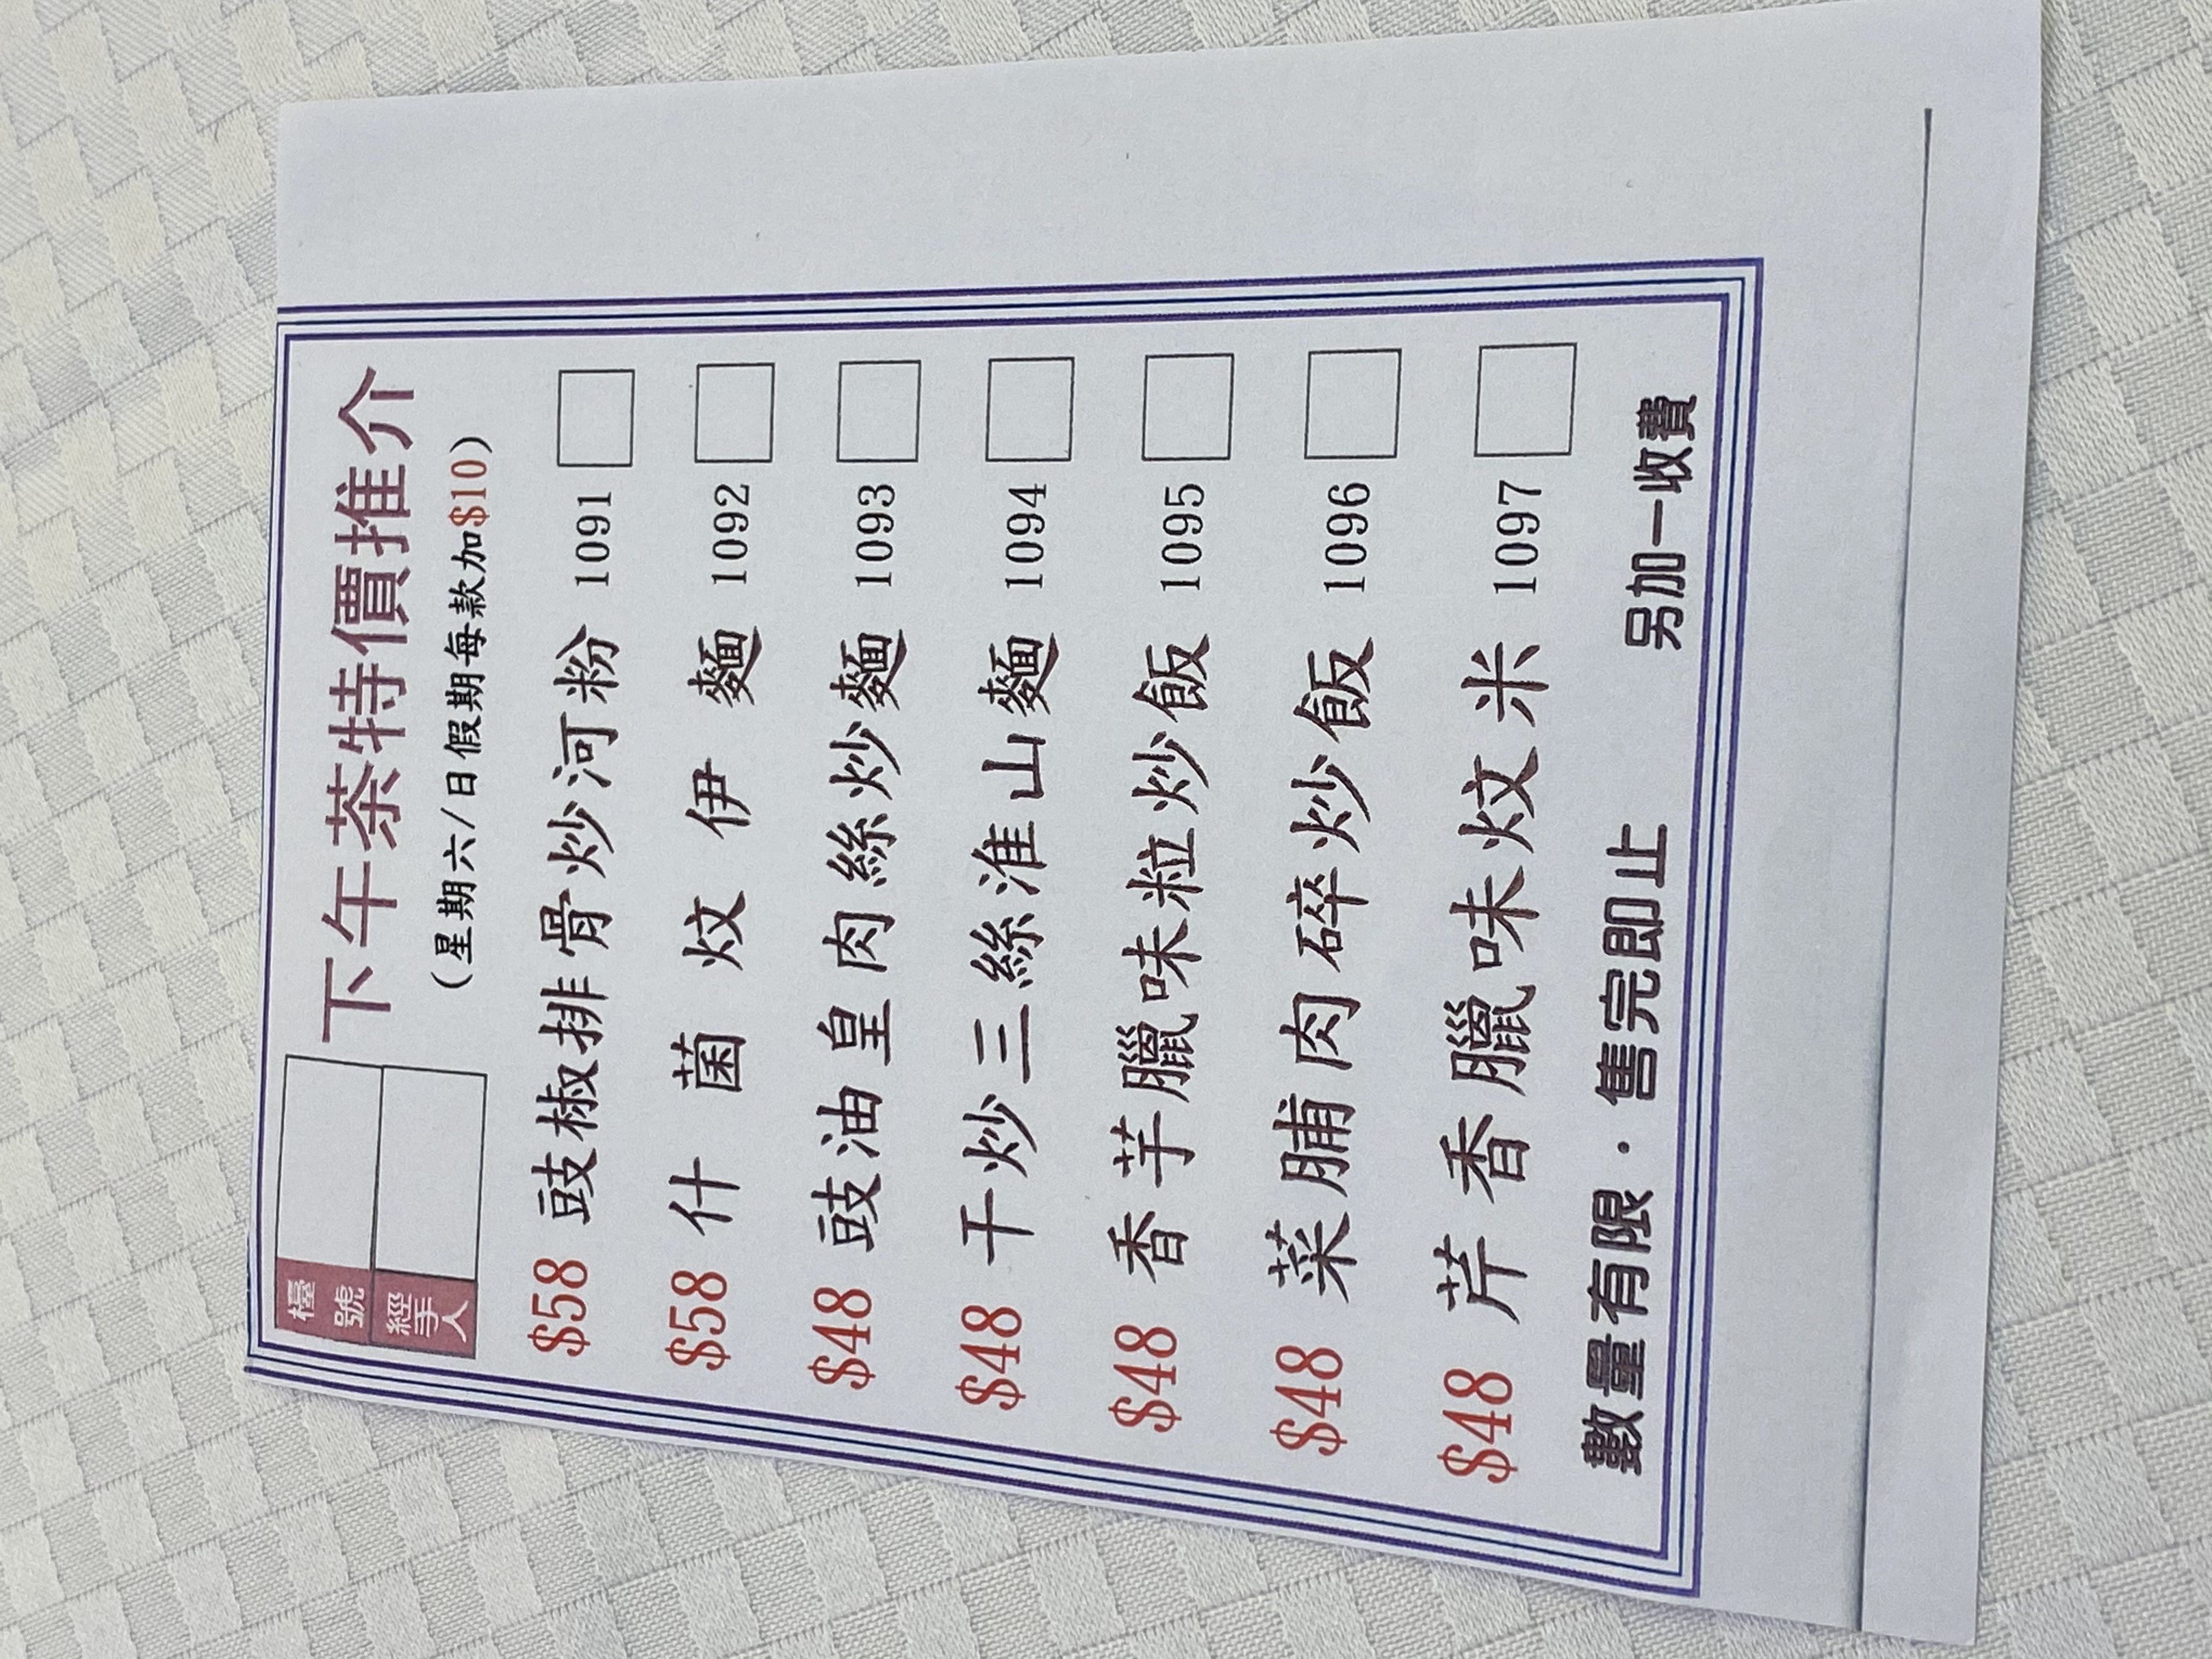 下午茶特價推介
(星期六/日假期每款加$10)
檯號
經手人
$58 豉椒排骨炒河粉 1091
$58 什菌炆伊麵 1092
$48 豉油皇肉絲炒麵 1093
$48 干炒三絲淮山麵 1094
$48 香芋臘味粒炒飯 1095
$48 菜脯肉碎炒飯 1096
$48 芹香臘味炆米 1097
數量有限．售完即止 另加一收費